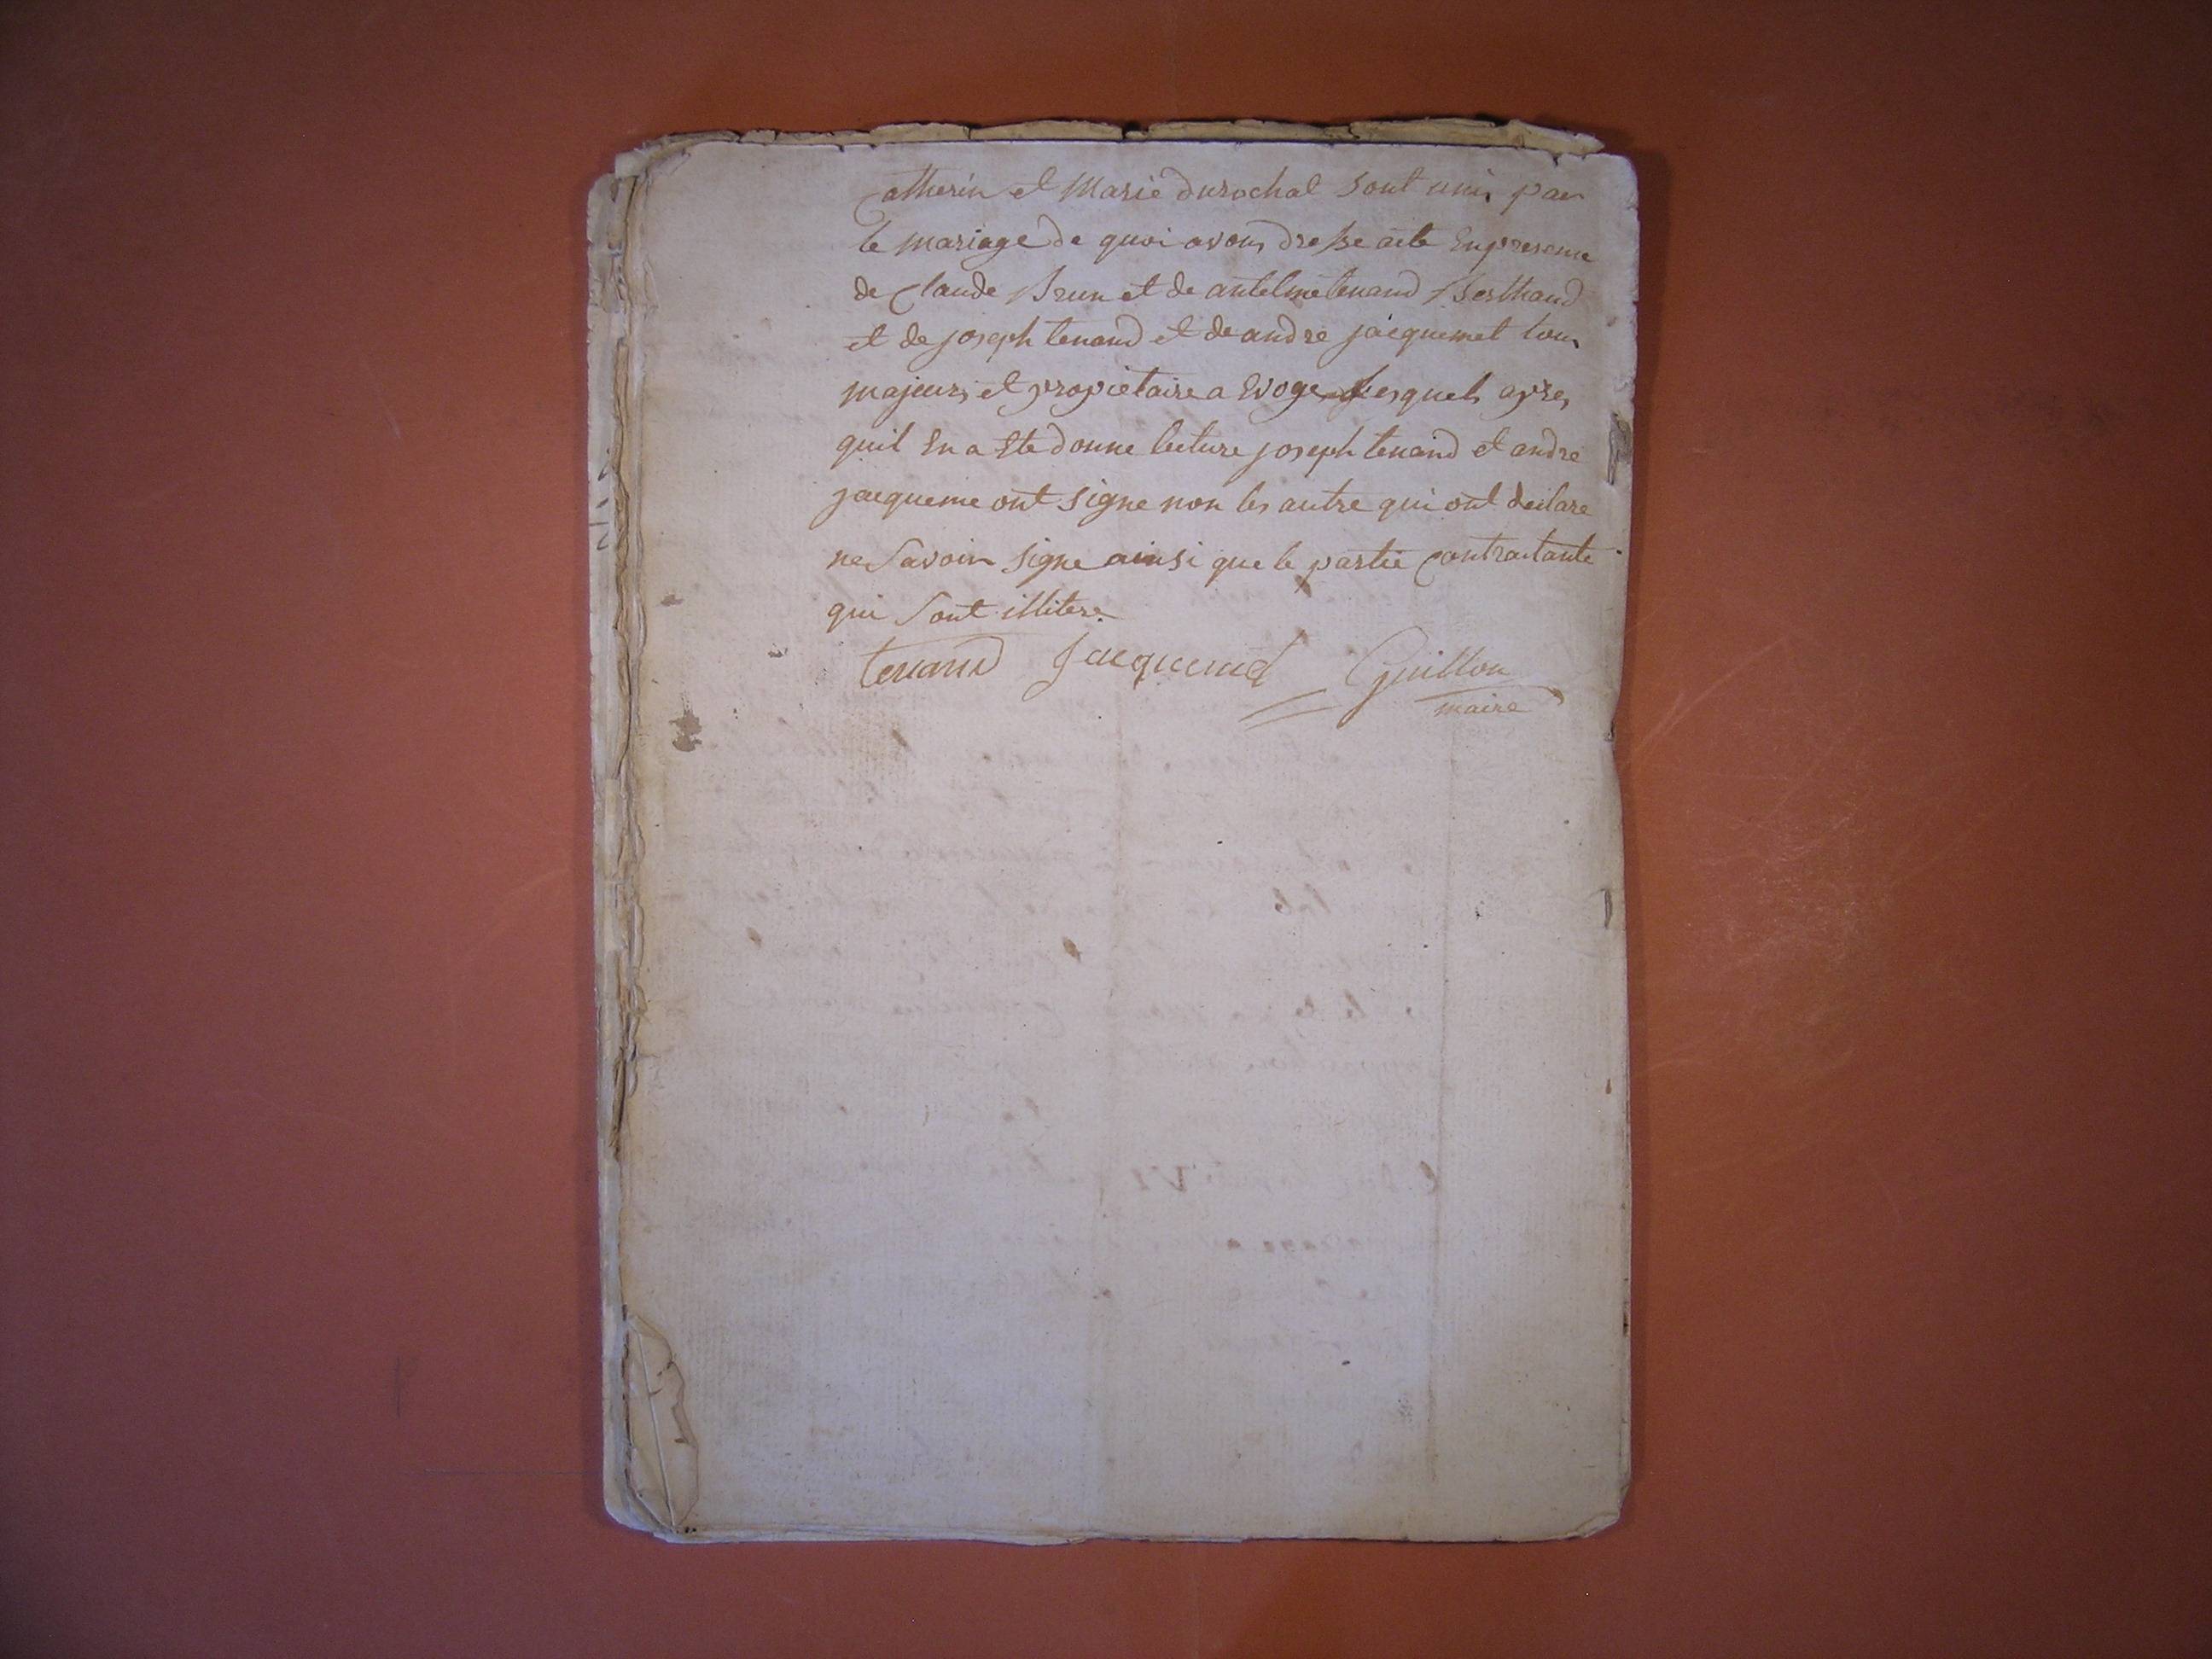 Catherin et Marie durochat sont unis par
le mariage de quoi avons dresse acte En presence
de Claude Brun et de antelme tenand Berthaud
et de joseph tenand et de andre jacquemet tous
majeurs et propietaire a Evoges lesquels apres
quil En a Ete donne lecture joseph tenand et andre
jacqueme ont signe non les autre qui ont declare
ne savoir signe ainsi que le partie Contractante
qui sont illitere.
tenand Jacquemet Guillon
maire